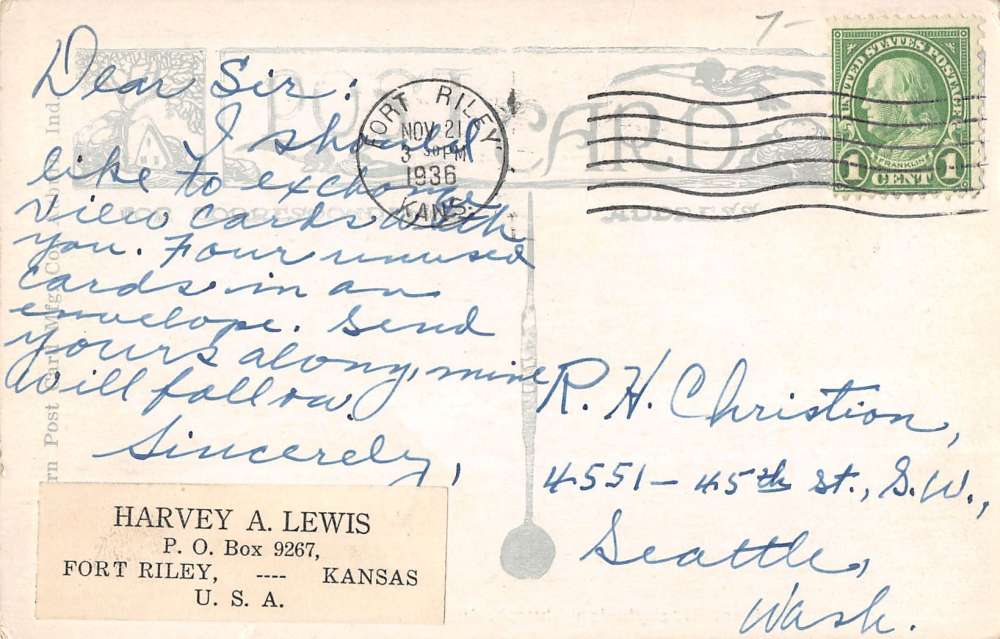 7-
POST CARD
UNITED STATES POSTAGE
FRANKLIN
1 CENT 1
FORT RILEY
NOV 21
3 30 PM
1936
KANS.
FOR CORRESPONDENCE
ADDRESS
Dear Sir:
I should
like to exchange
view cards with
you. Four unused
cards in an
envelope. Send
yours along, mine
will follow.
Sincerely,
HARVEY A. LEWIS
P. O. Box 9267,
FORT RILEY, ---- KANSAS
U. S. A.
R. H. Christion,
4551-45th St., S.W.,
Seattle,
Wash.
rn Post Card Mfg. Co. Ind.